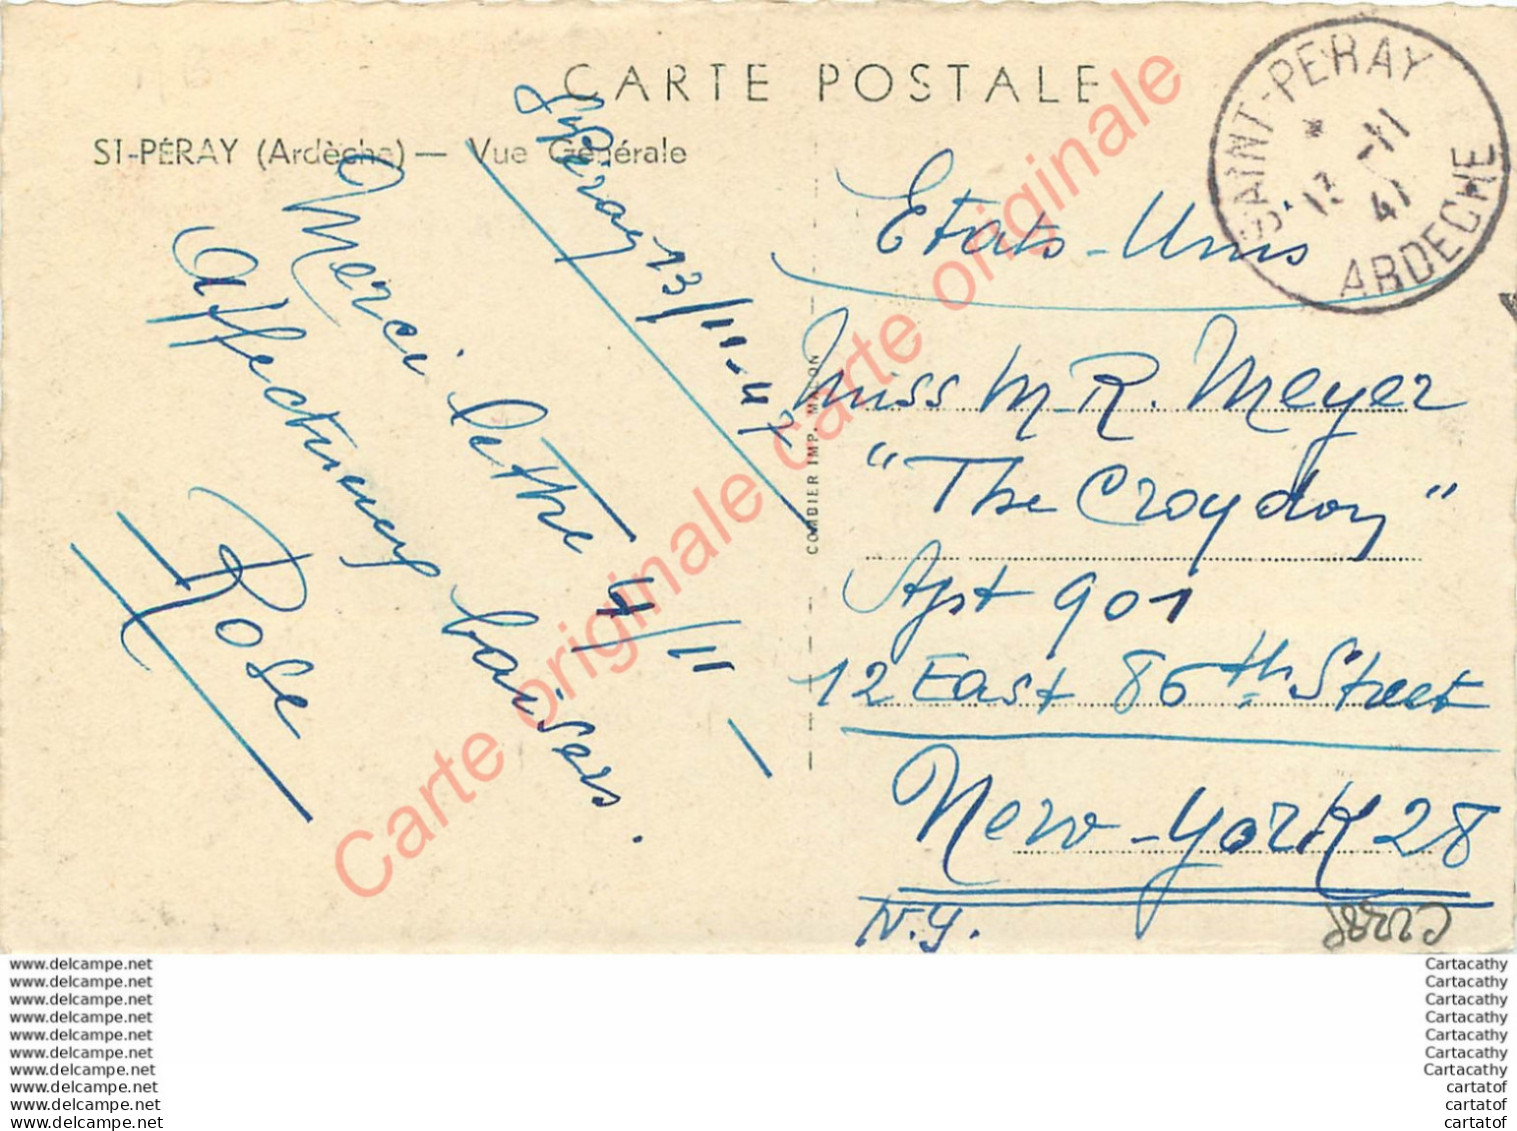 CARTE POSTALE
ST-PÉRAY (Ardèche) — Vue Générale
St Péray 13/11-47
Merci lettre 4/11
Affectueux baisers.
Rose
COMBIER IMP. MACON
SAINT-PERAY
* -11
13 47
ARDECHE
Etats-Unis
Miss M.R. Meyer
"The Croydon"
Apt 901
12 East 86th Street
New-York 28
N.Y.
Carte originale carte originale
Carte originale
www.delcampe.net
www.delcampe.net
www.delcampe.net
www.delcampe.net
www.delcampe.net
www.delcampe.net
www.delcampe.net
www.delcampe.net
www.delcampe.net
www.delcampe.net
Cartacathy
Cartacathy
Cartacathy
Cartacathy
Cartacathy
Cartacathy
Cartacathy
cartatof
cartatof
cartatof